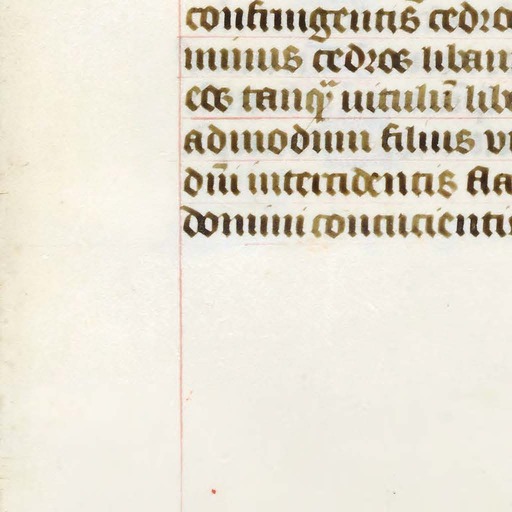 confringentis cedro
minus cedros liban
eos tanq̃ uitulũ lib
admodum filius v
dñi intercidentis fla
domini concucienti